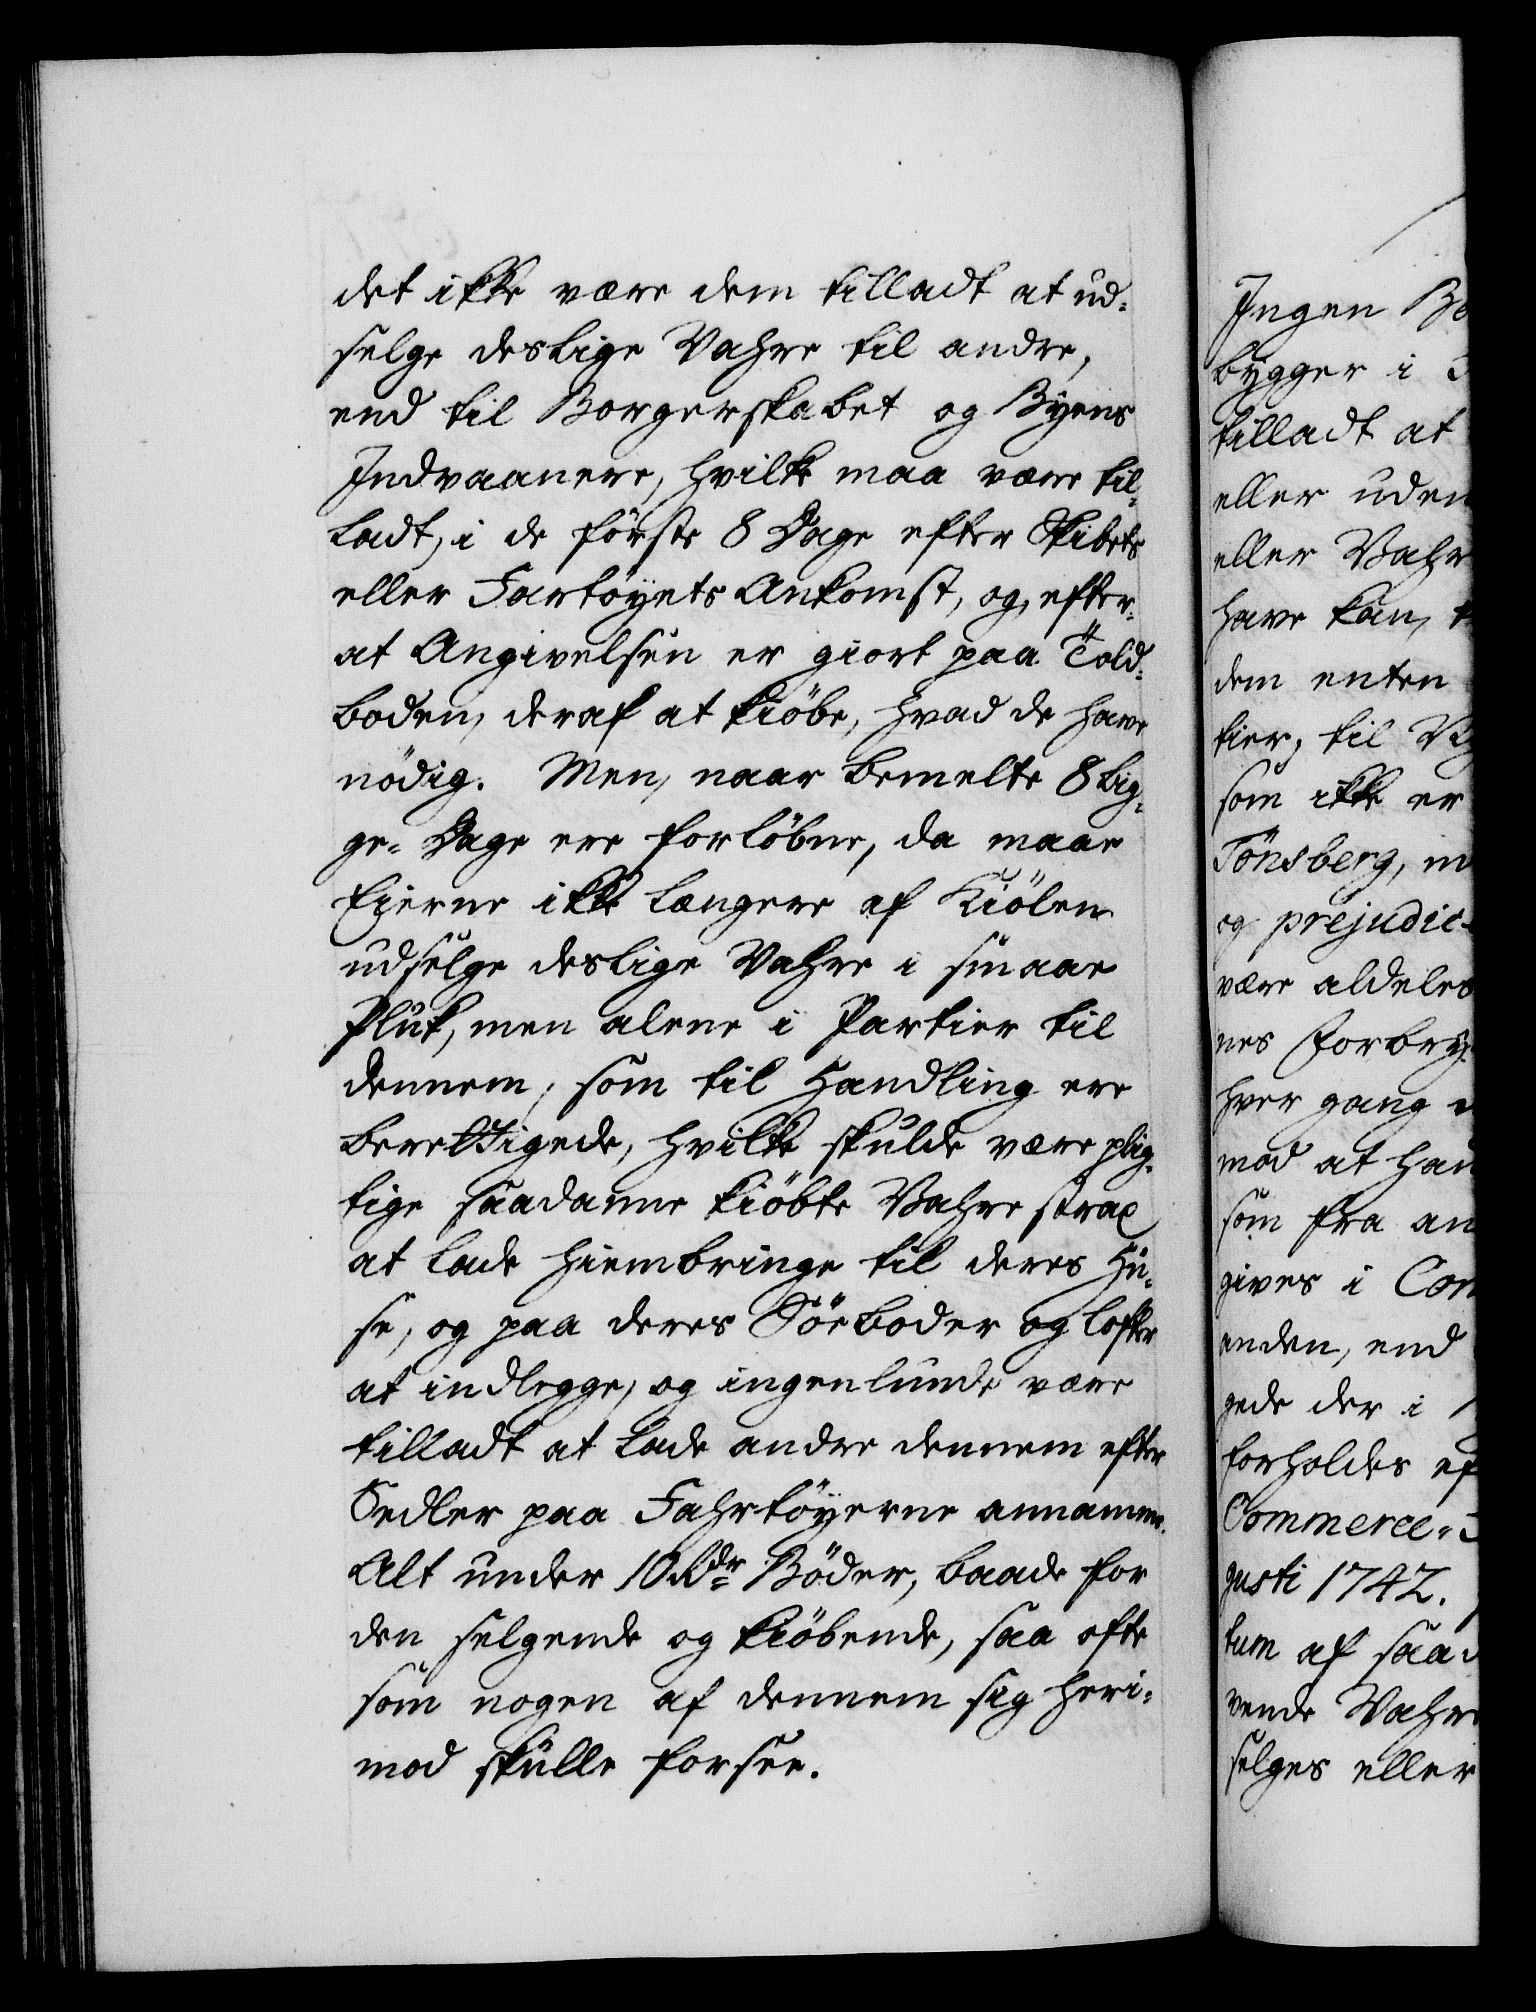 det ikke være dem tilladt at ud-
selge deslige Vahre til andre,
end til Borgerskabet og Byens
Indvaanere, hvilke maa være til-
ladt, i de første 8 Dage efter Skibets
eller Fartøyets Ankomst, og, efter-
at Angivelsen er giort paa Told-
boden, deraf at kiøbe, hvad de have
nødig. Men, naar bemelte 8 Lig-
ge-Dage ere forløbne, da maae
Eierne ikke længere af Kiølen
udselge deslige Vahre i smaae
Pluk, men alene i Partier til
dennem, som til Handling ere
berettigede, hvilke skulde være plig-
tige saadanne kiøbte Vahre strax
at lade hiembringe til deres Hu-
se, og paa deres Søeboder og lofter
at indlegge, og ingenlunde være
tilladt at lade andre dennem efter
Sedler paa Fahrtøyerne annamme.
Alt under 10 Rdr Bøder, baade for
den selgende og kiøbende, saa ofte
som nogen af dennem sig heri-
mod skulle forsee.
Ingen
bygger i
tilladt at
eller uden
eller Vahr
have kan,
dem enten
tier, til
som ikke er
Tønsberg,
og prejudic
være aldeles
nes Forbry
hver gang
mod at han
som fra an
gives i Com
anden, end
gede der i
forholdes ef
Commerce-
gusti 1742.
tum af saad
vende Vahre
selges eller